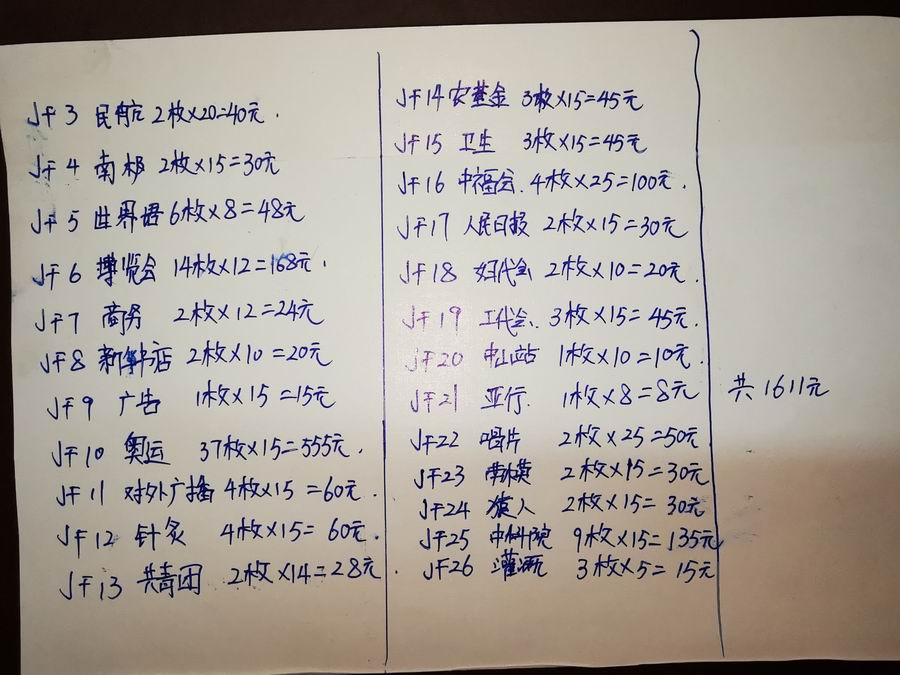 JF3 民航 2枚×20=40元.
JF4 南极 2枚×15=30元
JF5 世界语 6枚×8=48元
JF6 博览会 14枚×12=168元.
JF7 商务 2枚×12=24元
JF8 新华书店 2枚×10=20元
JF9 广告 1枚×15=15元
JF10 奥运 37枚×15=555元.
JF11 对外广播 4枚×15=60元.
JF12 针灸 4枚×15=60元.
JF13 共青团 2枚×14=28元.
JF14 安基金 3枚×15=45元
JF15 卫生 3枚×15=45元
JF16 中福会. 4枚×25=100元.
JF17 人民日报 2枚×15=30元
JF18 妇代会 2枚×10=20元.
JF19 工代会. 3枚×15=45元.
JF20 中山站 1枚×10=10元.
JF21 亚行. 1枚×8=8元
JF22 唱片 2枚×25=50元
JF23 南模 2枚×15=30元
JF24 猿人 2枚×15=30元
JF25 中科院 9枚×15=135元
JF26 灌溉 3枚×5=15元
共1611元